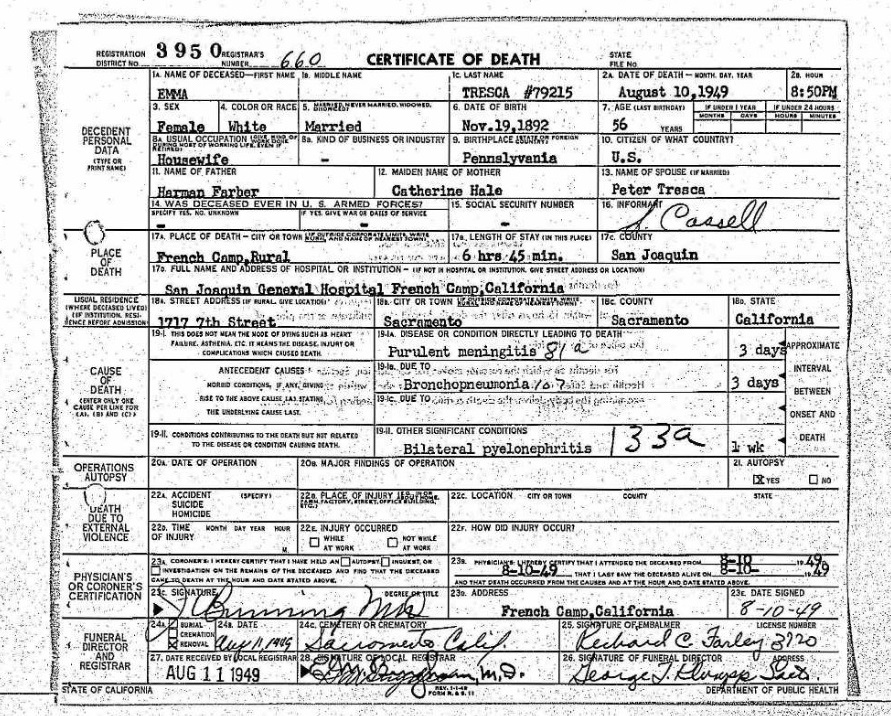 REGISTRATION DISTRICT NO. 3950 REGISTRAR'S NUMBER 660 CERTIFICATE OF DEATH STATE FILE NO.
1A. NAME OF DECEASED—FIRST NAME 1B. MIDDLE NAME 1C. LAST NAME 2A. DATE OF DEATH—MONTH, DAY, YEAR 2B. HOUR
EMMA TRESCA #79215 August 10,1949 8:50PM
DECEDENT PERSONAL DATA (TYPE OR PRINT NAME)
3. SEX 4. COLOR OR RACE 5. MARRIED, NEVER MARRIED, WIDOWED, 6. DATE OF BIRTH 7. AGE (LAST BIRTHDAY) IF UNDER 1 YEAR IF UNDER 24 HOURS
MONTHS DAYS HOURS MINUTES
Female White Married Nov.19,1892 56 YEARS
8A. USUAL OCCUPATION (GIVE KIND OF WORK DONE DURING MOST OF WORKING LIFE, EVEN IF RETIRED) 8B. KIND OF BUSINESS OR INDUSTRY 9. BIRTHPLACE 10. CITIZEN OF WHAT COUNTRY?
Housewife - Pennslyvania U.S.
11. NAME OF FATHER 12. MAIDEN NAME OF MOTHER 13. NAME OF SPOUSE (IF MARRIED)
Harman Farber Catherine Hale Peter Tresca
14. WAS DECEASED EVER IN U. S. ARMED FORCES? 15. SOCIAL SECURITY NUMBER 16. INFORMANT
SPECIFY YES, NO, UNKNOWN IF YES, GIVE WAR OR DATES OF SERVICE
- - - S. Cassell
PLACE OF DEATH
17A. PLACE OF DEATH—CITY OR TOWN 17B. LENGTH OF STAY (IN THIS PLACE) 17C. COUNTY
French Camp,Rural 6 hrs 45 min. San Joaquin
17D. FULL NAME AND ADDRESS OF HOSPITAL OR INSTITUTION—(IF NOT IN HOSPITAL OR INSTITUTION, GIVE STREET ADDRESS OR LOCATION)
San Joaquin General Hospital French Camp,California
USUAL RESIDENCE (WHERE DECEASED LIVED) (IF INSTITUTION, RESIDENCE BEFORE ADMISSION)
18A. STREET ADDRESS (IF RURAL, GIVE LOCATION) 18B. CITY OR TOWN 18C. COUNTY 18D. STATE
1717 7th Street Sacramento Sacramento California
CAUSE OF DEATH (ENTER ONLY ONE CAUSE PER LINE FOR (A), (B) AND (C))
19-I. THIS DOES NOT MEAN THE MODE OF DYING SUCH AS HEART FAILURE, ASTHENIA, ETC. IT MEANS THE DISEASE, INJURY OR COMPLICATIONS WHICH CAUSED DEATH.
19-IA. DISEASE OR CONDITION DIRECTLY LEADING TO DEATH
Purulent meningitis 81a 3 days
APPROXIMATE INTERVAL BETWEEN ONSET AND DEATH
ANTECEDENT CAUSES
MORBID CONDITIONS, IF ANY, GIVING RISE TO THE ABOVE CAUSE (A) STATING THE UNDERLYING CAUSE LAST.
19-IB. DUE TO
Bronchopneumonia 107 3 days
19-IC. DUE TO
19-II. CONDITIONS CONTRIBUTING TO THE DEATH BUT NOT RELATED TO THE DISEASE OR CONDITION CAUSING DEATH.
19-II. OTHER SIGNIFICANT CONDITIONS
Bilateral pyelonephritis 133a 1 wk
OPERATIONS AUTOPSY
20A. DATE OF OPERATION 20B. MAJOR FINDINGS OF OPERATION 21. AUTOPSY
X YES NO
DEATH DUE TO EXTERNAL VIOLENCE
22A. ACCIDENT SUICIDE HOMICIDE (SPECIFY) 22B. PLACE OF INJURY 22C. LOCATION CITY OR TOWN COUNTY STATE
22D. TIME OF INJURY MONTH DAY YEAR HOUR M. 22E. INJURY OCCURRED WHILE AT WORK NOT WHILE AT WORK 22F. HOW DID INJURY OCCUR?
PHYSICIAN'S OR CORONER'S CERTIFICATION
23A. CORONER'S: I HEREBY CERTIFY THAT I HAVE HELD AN AUTOPSY, INQUEST, OR INVESTIGATION ON THE REMAINS OF THE DECEASED AND FIND THAT THE DECEASED CAME TO DEATH AT THE HOUR AND DATE STATED ABOVE.
23B. PHYSICIAN'S: I HEREBY CERTIFY THAT I ATTENDED THE DECEASED FROM 8-10 1949
8-10-49 THAT I LAST SAW THE DECEASED ALIVE ON 8-10- 1949
AND THAT DEATH OCCURRED FROM THE CAUSES AND AT THE HOUR AND DATE STATED ABOVE.
23C. SIGNATURE DEGREE OR TITLE 23D. ADDRESS 23E. DATE SIGNED
MD French Camp,California 8-10-49
FUNERAL DIRECTOR AND REGISTRAR
24A. BURIAL CREMATION X REMOVAL 24B. DATE 24C. CEMETERY OR CREMATORY 25. SIGNATURE OF EMBALMER LICENSE NUMBER
Aug 11, 1949 Sacramento Calif. Richard C. Farley 3720
27. DATE RECEIVED BY LOCAL REGISTRAR 28. SIGNATURE OF LOCAL REGISTRAR 26. SIGNATURE OF FUNERAL DIRECTOR ADDRESS
AUG 11 1949 M.D. George T.
STATE OF CALIFORNIA REV. 1-1-49 FORM R. & S. 11 DEPARTMENT OF PUBLIC HEALTH